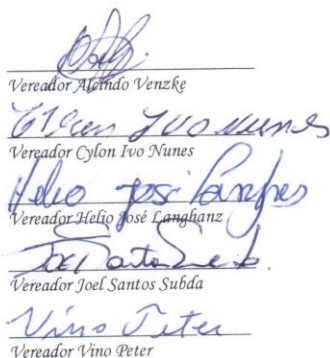 Vereador Alcindo Venzke
Cylon Ivo Nunes
Vereador Cylon Ivo Nunes
Helio José Langhanz
Vereador Helio José Langhanz
Joel Santos Subda
Vereador Joel Santos Subda
Vino Peter
Vereador Vino Peter